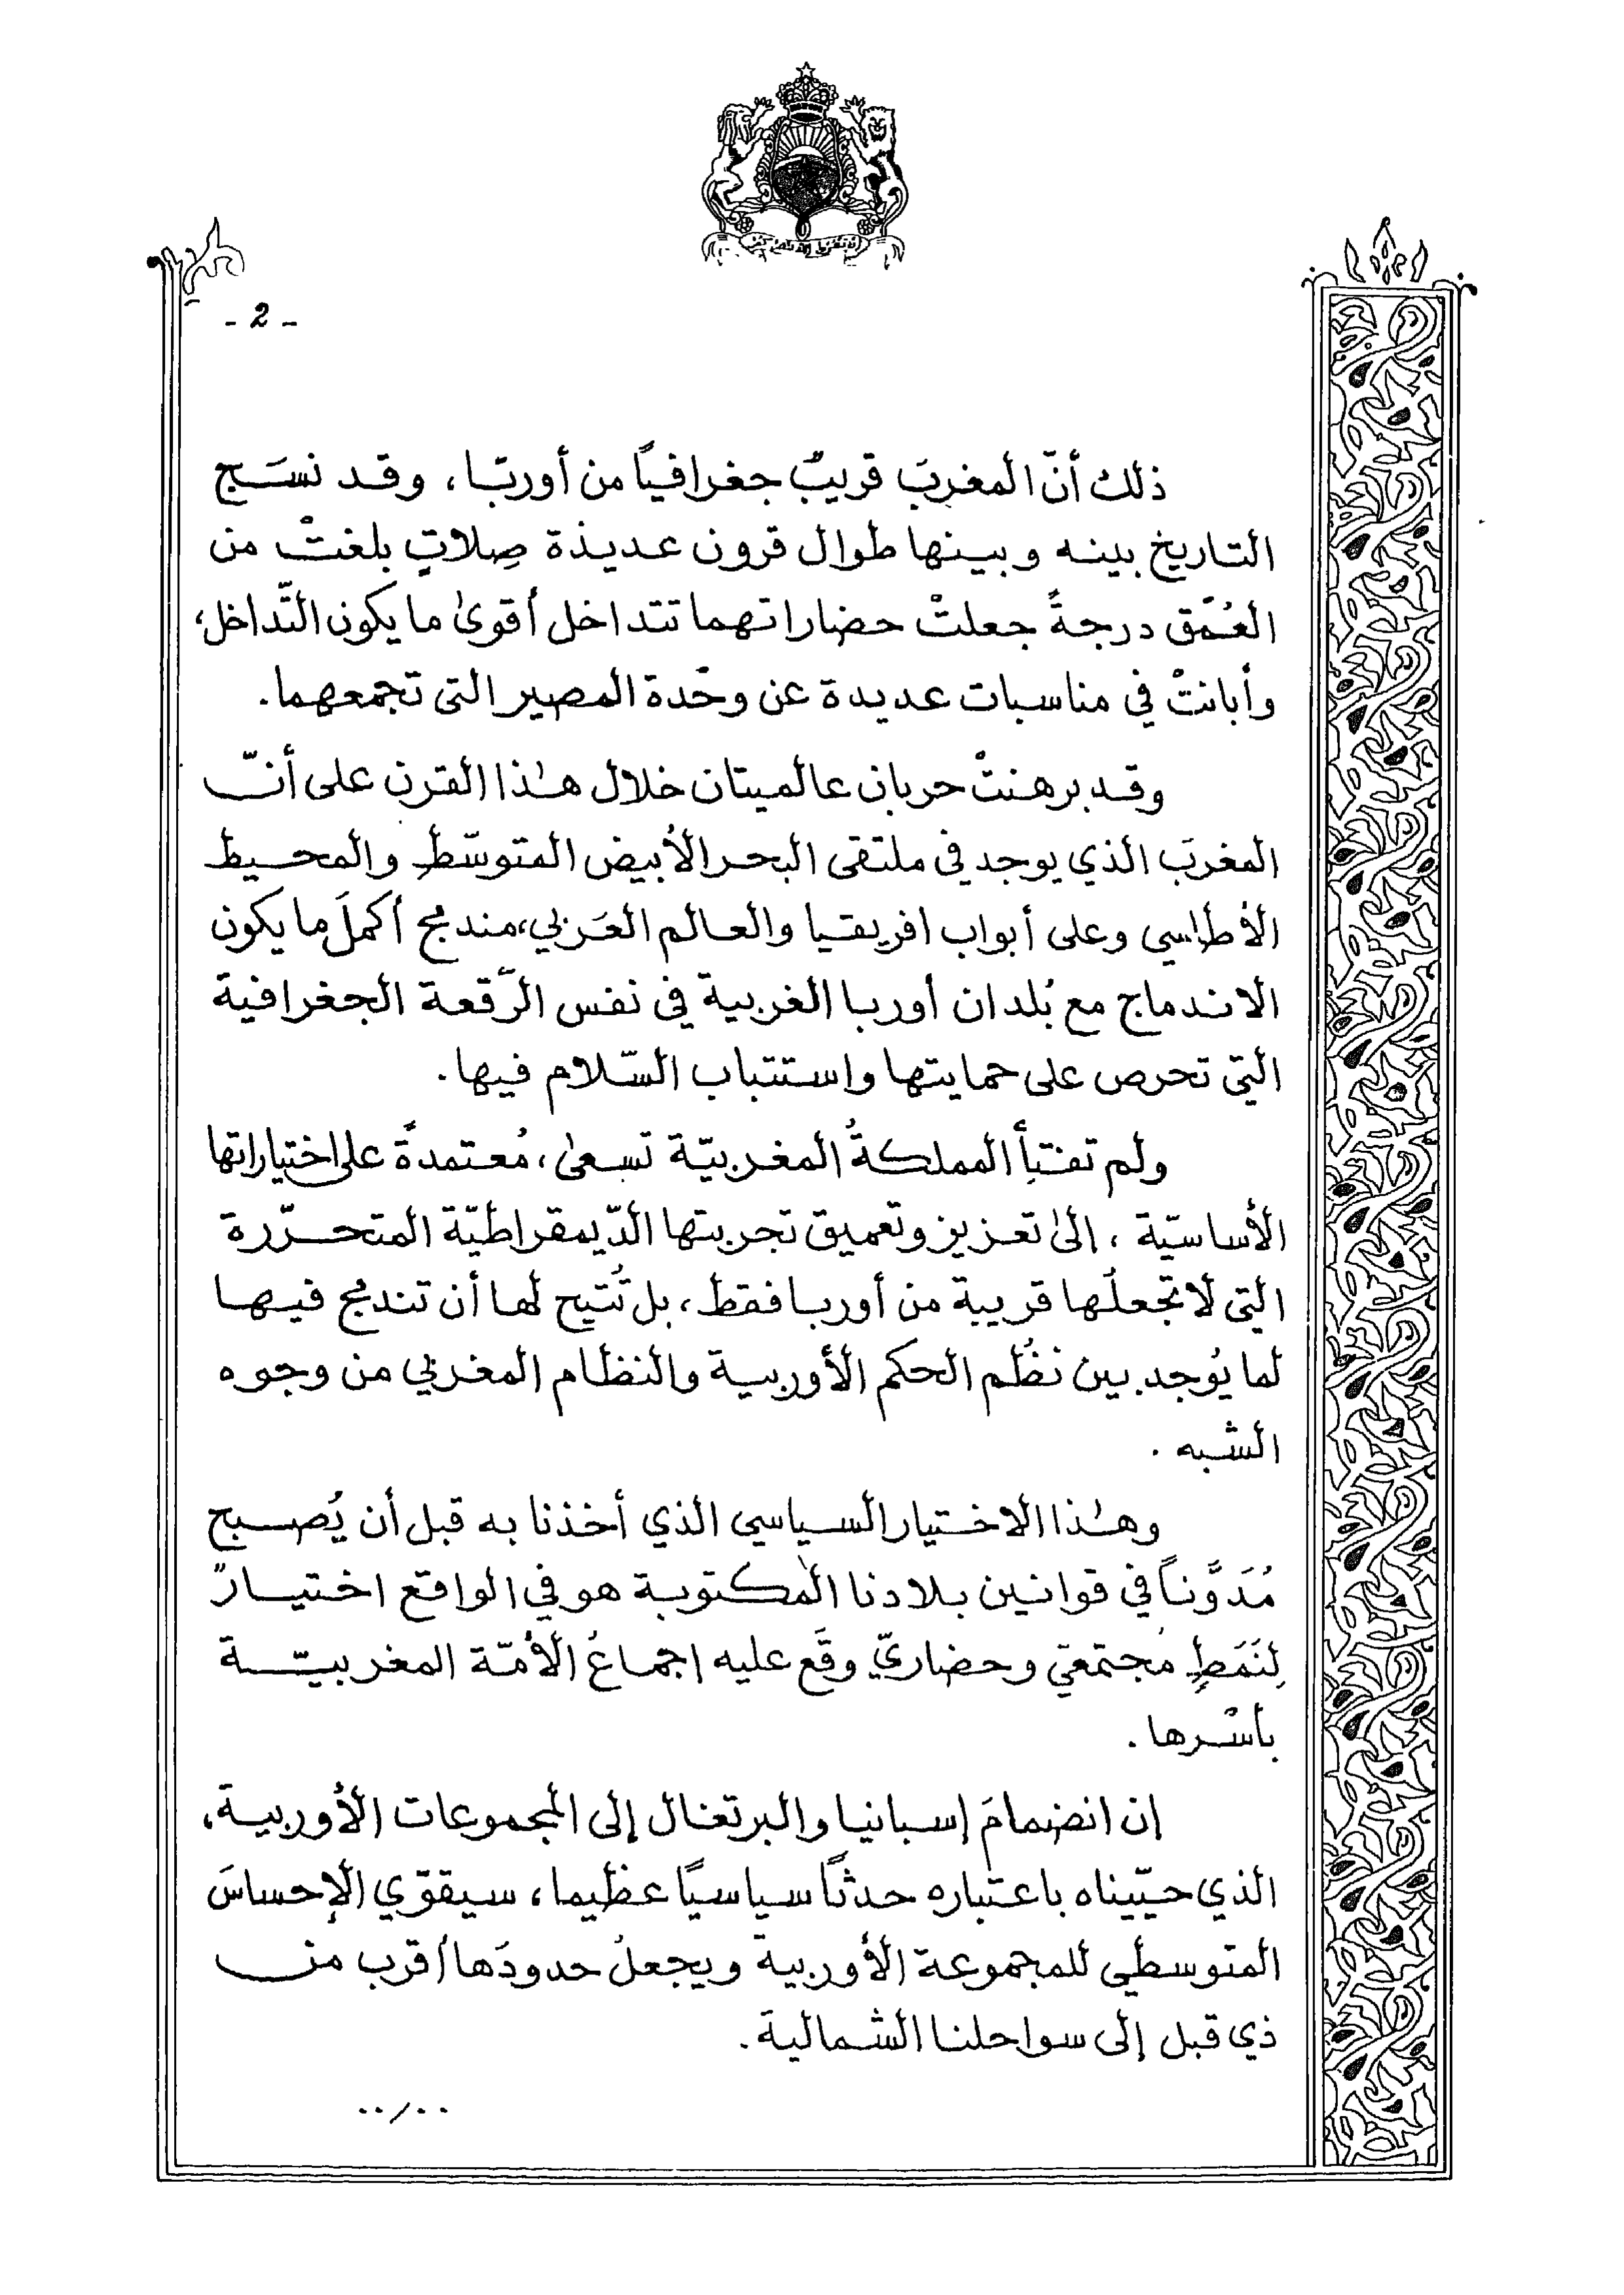 - 2 -
ذلك أنّ المغربَ قريبٌ جغرافياً من أوربّا، وقد نسَج
التاريخ بينه وبينها طوال قرون عديدة صِلاتٍ بلغتْ من
العُمْق درجةً جعلتْ حضاراتهما تتداخل أقوىٰ ما يكون التّداخل،
وأبانتْ في مناسبات عديدة عن وحْدة المصير التي تجمعهما.
وقد برهنتْ حربان عالميتان خلال هٰذا القرن على أنّ
المغربَ الذي يوجد في ملتقى البحر الأبيض المتوسّطِ والمحيط
الأطلسي وعلى أبواب افريقيا والعالم العَربي، مندمج أكملَ ما يكون
الاندماج مع بُلدان أوربا الغربية في نفس الرّقعة الجغرافية
التي تحرص على حمايتها واستتباب السّلام فيها.
ولم تفتأ المملكةُ المغربيّة تسعىٰ، مُعتمدةً على اختياراتها
الأساسيّة، إلىٰ تعزيز وتعميق تجربتها الدّيمقراطيّة المتحرّرة
التي لا تجعلُها قريبة من أوربا فقط، بل تُتيح لها أن تندمج فيها
لما يُوجد بين نظُم الحكم الأوربية والنظام المغربي من وجوه
الشّبه .
وهٰذا الاختيار السياسي الذي أخذنا به قبل أن يُصبح
مُدَوَّناً في قوانين بلادنا المكتوبة هو في الواقع اختيارٌ
لِنَمَطٍ مُجتمعيّ وحضاريّ وقَع عليه اجماعُ الأمّة المغربيّة
بأسْرها .
إن انضمامَ إسبانيا والبرتغال إلى المجموعات الأوربية،
الذي حيّيناه باعتباره حدثاً سياسيًا عظيما، سيقوّي الإحساسَ
المتوسطي للمجموعة الأوربية ويجعلُ حدودَها أقرب من
ذي قبل إلى سواحلنا الشمالية.
../..